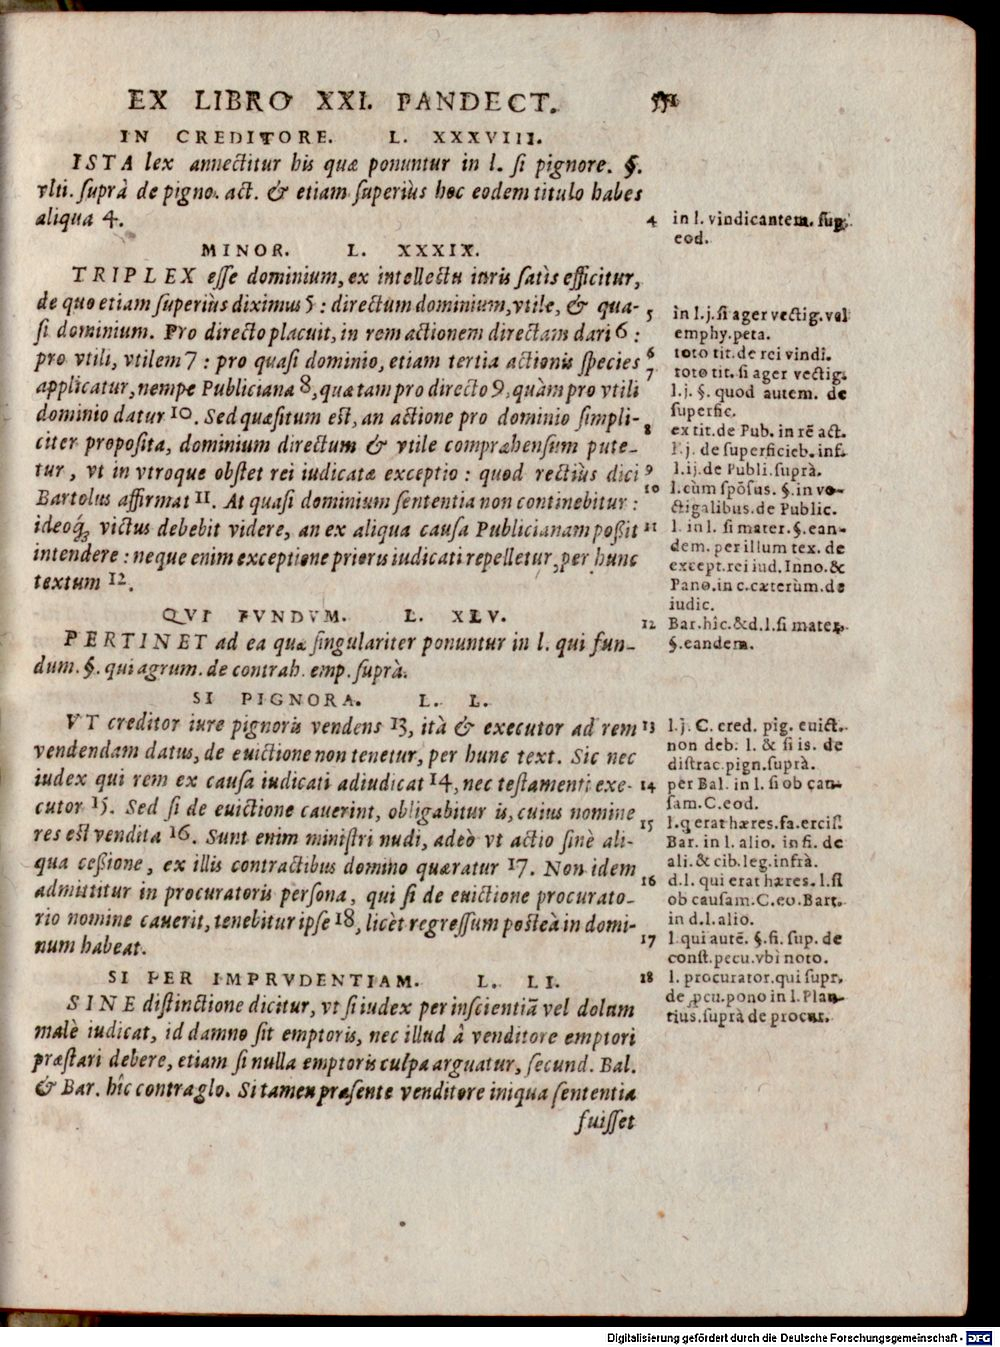 EX LIBRO XXI. PANDECT. 551
IN CREDITORE. L. XXXVIII.
ISTA lex annectitur his quæ ponuntur in l. si pignore. §.
vlti. suprà de pigno. act. & etiam superiùs hoc eodem titulo habes
aliqua 4.
MINOR. L. XXXIX.
TRIPLEX esse dominium, ex intellectu iuris satis efficitur,
de quo etiam superiùs diximus 5 : directum dominium, vtile, & qua-
si dominium. Pro directo placuit, in rem actionem directam dari 6 :
pro vtili, vtilem 7 : pro quasi dominio, etiam tertia actionis species
applicatur, nempe Publiciana 8, quæ tam pro directo 9, quàm pro vtili
dominio datur 10. Sed quæsitum est, an actione pro dominio simpli-
citer proposita, dominium directum & vtile compræhensum pute-
tur, vt in vtroque obstet rei iudicatæ exceptio : quod rectiùs dici
Bartolus affirmat 11. At quasi dominium sententia non continebitur :
ideoq́ꝫ victus debebit videre, an ex aliqua causa Publicianam poßit
intendere : neque enim exceptione prioris iudicati repelletur, per hunc
textum 12.
QVI FVNDVM. L. XLV.
PERTINET ad ea quæ singulariter ponuntur in l. qui fun-
dum. §. qui agrum. de contrah. emp. suprà.
SI PIGNORA. L. L.
VT creditor iure pignoris vendens 13, ità & executor ad rem
vendendam datus, de euictione non tenetur, per hunc text. Sic nec
iudex qui rem ex causa iudicati adiudicat 14, nec testamenti exe-
cutor 15. Sed si de euictione cauerint, obligabitur is, cuius nomine
res est vendita 16. Sunt enim ministri nudi, adeò vt actio sinè ali-
qua ceßione, ex illis contractibus domino quæratur 17. Non idem
admittitur in procuratoris persona, qui si de euictione procurato-
rio nomine cauerit, tenebitur ipse 18, licèt regressum posteà in domi-
num habeat.
SI PER IMPRVDENTIAM. L. LI.
SINE distinctione dicitur, vt si iudex per inscientiã vel dolum
malè iudicat, id damno sit emptoris, nec illud à venditore emptori
præstari debere, etiam si nulla emptoris culpa arguatur, secund. Bal.
& Bar. hîc contra glo. Si tamen præsente venditore iniqua sententia
fuisset
4 in l. vindicantem. sup.
eod.
5 in l. j. si ager vectig. vel
emphy. peta.
6 toto tit. de rei vindi.
7 toto tit. si ager vectig.
l. j. §. quod autem. de
superfic.
8 ex tit. de Pub. in rē act.
l. j. de superficieb. inf.
9 l. ij. de Publi. suprà.
10 l. cùm spōsus. §. in ve-
ctigalibus. de Public.
11 l. in l. si mater. §. ean-
dem. per illum tex. de
except. rei iud. Inno. &
Pano. in c. cæterùm. de
iudic.
12 Bar. hîc. & d. l. si mater.
§. eandem.
13 l. j. C. cred. pig. euict.
non deb. l. & si is. de
distrac. pign. suprà.
14 per Bal. in l. si ob cau-
sam. C. eod.
15 l. q erat hæres. fa. ercis.
Bar. in l. alio. in fi. de
ali. & cib. leg. infrà.
16 d. l. qui erat hæres. l. si
ob causam. C. eo. Bart.
in d. l. alio.
17 l. qui autē. §. fi. sup. de
const. pecu. vbi noto.
18 l. procurator. qui supr.
de ꝓcu. pono in l. Plau-
tius. suprà de procur.
Digitalisierung gefördert durch die Deutsche Forschungsgemeinschaft - DFG